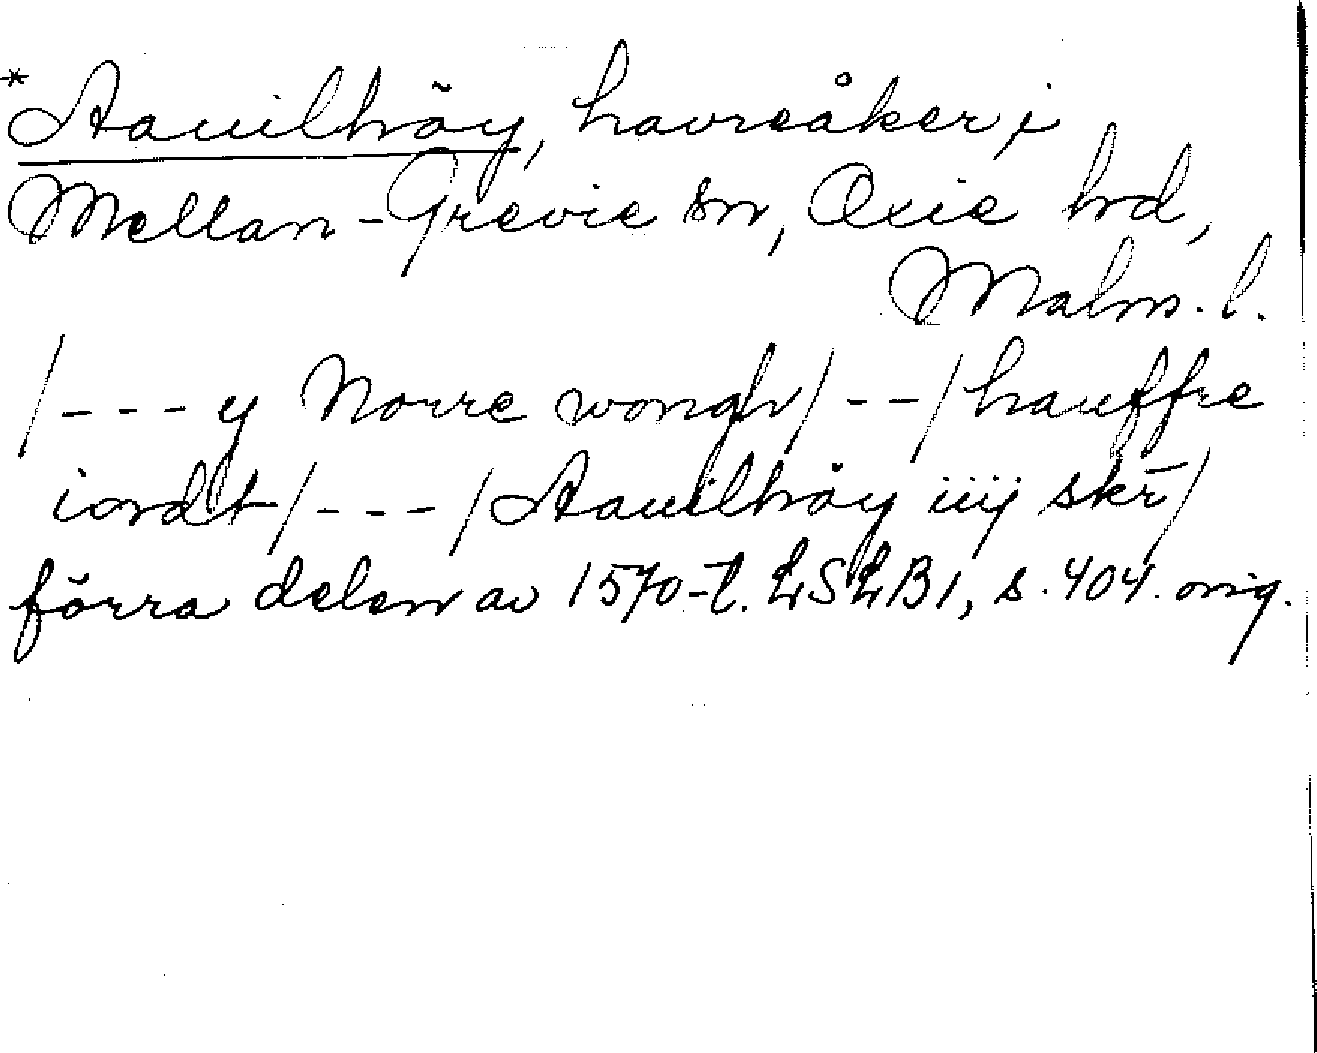 *Aauilhöy, havreåker i
Mellan-Grevie sn, Oxie hd,
Malm. l.
/---y Norre wongh/--/hauffre
iordt/---/Aauilhöy iiij skr/
förra delen av 1570-t. LSLB1, s. 404. orig.